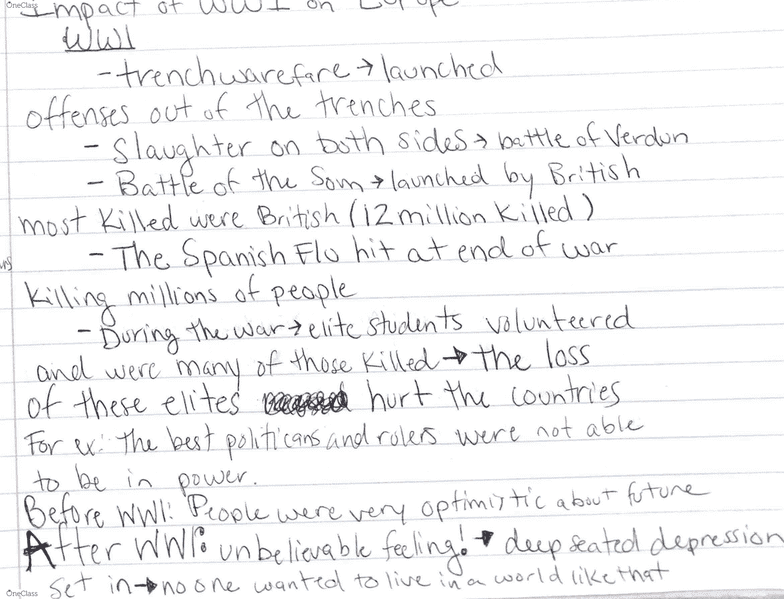 OneClass
Impact of WWI on Europe
WWI
- trenchwarefare → launched
offenses out of the trenches
- Slaughter on both sides → battle of Verdun
- Battle of the Som → launched by British
most killed were British (12 million killed)
- The Spanish Flu hit at end of war
killing millions of people
- During the war → elite students volunteered
and were many of those killed → the loss
of these elites hurt the countries
For ex: the best politicans and rulers were not able
to be in power.
Before WWI: People were very optimistic about future
After WWI: unbelievable feeling! → deep seated depression
set in → no one wanted to live in a world like that
OneClass